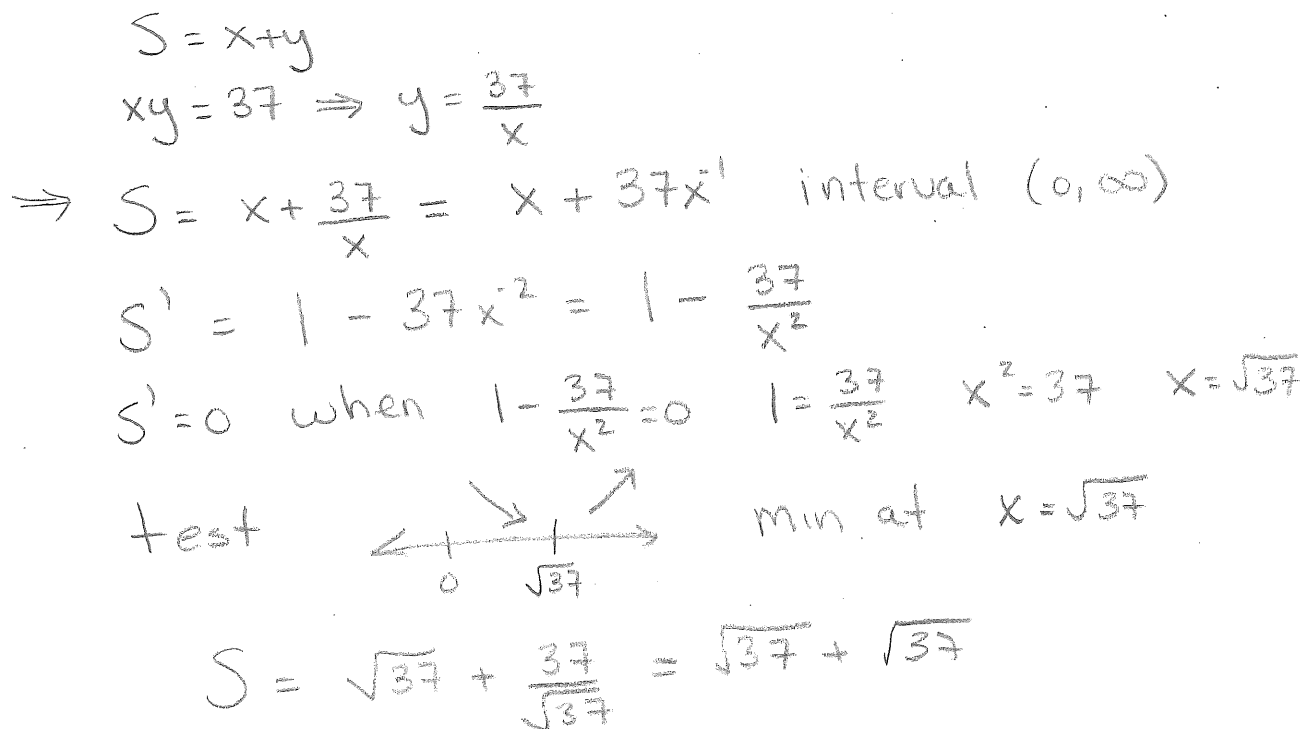 S = x+y
xy = 37 ⇒ y = 37/x
⇒ S = x + 37/x = x + 37x⁻¹ interval (0, ∞)
S' = 1 - 37x⁻² = 1 - 37/x²
S' = 0 when 1 - 37/x² = 0 1 = 37/x² x² = 37 x = √37
test 0 √37 min at x = √37
S = √37 + 37/√37 = √37 + √37